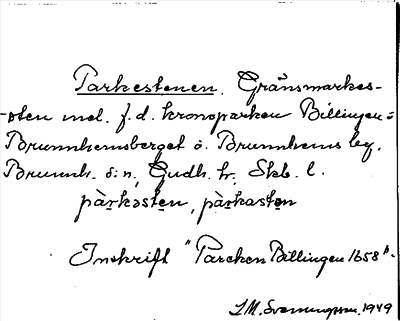 Parkestenen. Gränsmarkes-
-sten mel. f.d. kronoparken Billingen =
Brunnhemsberget o. Brunnhems by.
Brunnh. s:n, Gudh. hr. Skb. l.
pàrkəstən, pàrkastən
Inskrift "Parcken Billingen 1658".
1949